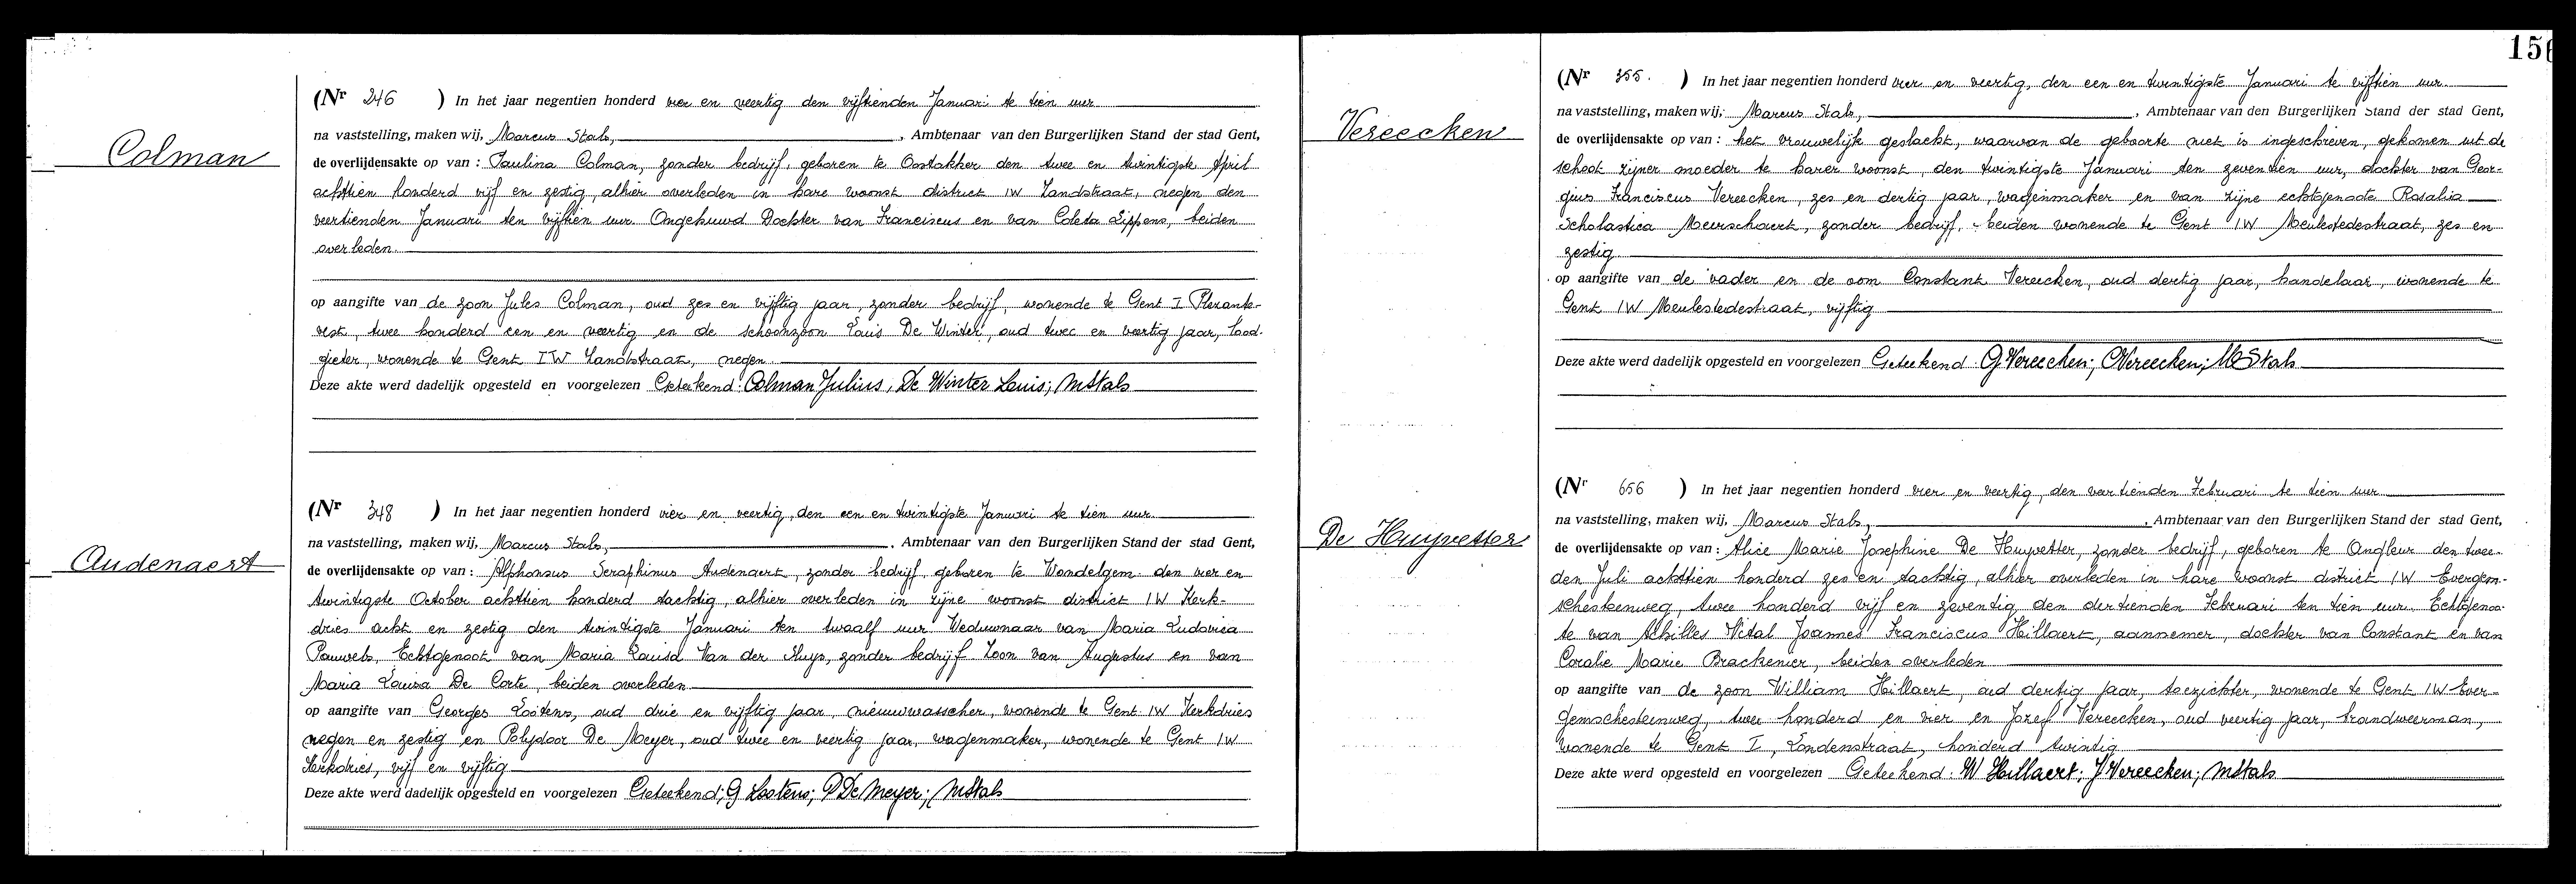 Colman
(Nr 246 ) In het jaar negentien honderd vier en veertig den vijftienden Januari te tien uur
na vaststelling, maken wij, Marcus Stals, , Ambtenaar van den Burgerlijken Stand der stad Gent,
de overlijdensakte op van : Paulina Colman, zonder bedrijf, geboren te Oostakker den twee en twintigste April
achttien honderd vijf en zestig, alhier overleden in hare woonst district IW Zandstraat, negen den
veertienden Januari ten vijftien uur. Ongehuwd Dochter van Franciscus en van Coleta Lippens, beiden
overleden.
op aangifte van de zoon Jules Colman, oud zes en vijftig jaar, zonder bedrijf, wonende te Gent I
vest, twee honderd een en veertig en de schoonzoon Louis De Winter, oud twee en veertig jaar, lood-
gieter, wonende te Gent IW Zandstraat, negen
Deze akte werd dadelijk opgesteld en voorgelezen Geteekend: Colman Julius, De Winter Louis; MStals
Audenaert
(Nr 348 ) In het jaar negentien honderd vier en veertig, den een en twintigste Januari te tien uur
na vaststelling, maken wij, Marcus Stals, , Ambtenaar van den Burgerlijken Stand der stad Gent,
de overlijdensakte op van : Alphonsus Seraphinus Audenaert, zonder bedrijf, geboren te Wondelgem den vier en
twintigste October achttien honderd tachtig, alhier overleden in zijne woonst district IW Kerk-
dries acht en zestig den twintigste Januari ten twaalf uur Weduwnaar van Maria Ludovica
Pauwels, Echtgenoot van Maria Louisa Van der Sluys, zonder bedrijf Zoon van Augustus en van
Maria Louisa De Corte, beiden overleden
op aangifte van Georges Lootens, oud drie en vijftig jaar, nieuwwasscher, wonende te Gent IW Kerkdries
negen en zestig en Polydoor De Meyer, oud twee en veertig jaar, wagenmaker, wonende te Gent IW
Kerkdries, vijf en vijftig
Deze akte werd dadelijk opgesteld en voorgelezen Geteekend; G Lootens; P De Meyer; MStals
156
Vereecken
(Nr 355. ) In het jaar negentien honderd vier en veertig, den een en twintigste Januari te vijftien uur
na vaststelling, maken wij, Marcus Stals, , Ambtenaar van den Burgerlijken Stand der stad Gent,
de overlijdensakte op van : het vrouwelijk geslacht, waarvan de geboorte niet is ingeschreven, gekomen uit de
schoot zijner moeder te harer woonst, den twintigste Januari ten zeventien uur, dochter van Geor-
gius Franciscus Vereecken, zes en dertig jaar, wagenmaker en van zijne echtgenoote Rosalia
Scholastica Meirschaert, zonder bedrijf, beiden wonende te Gent IW Meulestedestraat, zes en
zestig.
op aangifte van de vader en de oom Constant Vereecken, oud dertig jaar, handelaar, wonende te
Gent IW Meulestedestraat, vijftig
Deze akte werd dadelijk opgesteld en voorgelezen Geteekend: G Vereecken; C Vereecken; MStals
De Huyvetter
(Nr 656 ) In het jaar negentien honderd vier en veertig, den veertienden Februari te tien uur
na vaststelling, maken wij, Marcus Stals, , Ambtenaar van den Burgerlijken Stand der stad Gent,
de overlijdensakte op van : Alice Marie Josephine De Huyvetter, zonder bedrijf, geboren te Angleur den twee-
den Juli achttien honderd zes en tachtig, alhier overleden in hare woonst district IW Evergem-
schesteenweg, twee honderd vijf en zeventig den dertienden Februari ten tien uur. Echtgenoo-
te van Achilles Vital Joannes Franciscus Hillaert, aannemer, dochter van Constant en van
Coralie Marie Brackenier, beiden overleden
op aangifte van de zoon William Hillaert, oud dertig jaar, toezichter, wonende te Gent IW Ever-
gemschesteenweg, twee honderd en vier en Jozef Vereecken, oud veertig jaar, brandweerman,
wonende te Gent I, Londenstraat, honderd twintig
Deze akte werd opgesteld en voorgelezen Geteekend: W Hillaert; J Vereecken; MStals